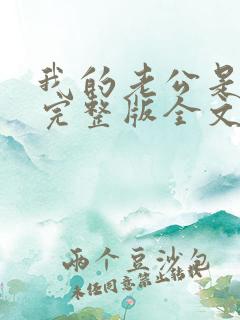 我的老公是
完整版全文
两个豆沙包
未经同意禁止转载